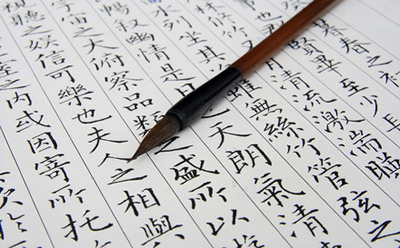 春之
賢畢至少
清流激湍
列坐其
雖無絲竹管弦之
暢敘幽情是
天朗氣清
之大俯察品
之盛所以
聽之娛信可樂也夫人之相與
之內或因寄所托